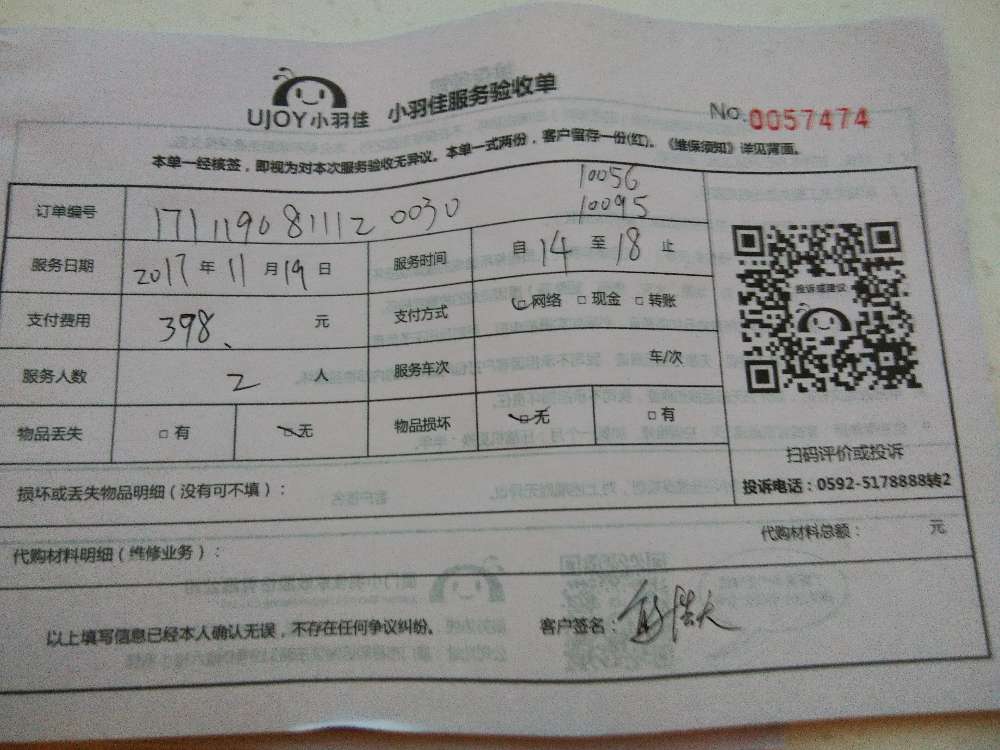 UJOY小羽佳 小羽佳服务验收单
No.0057474
本单一经核签，即视为对本次服务验收无异议。本单一式两份，客户留存一份(红)。《维保须知》详见背面。
10056
订单编号 171119081112 0030 10095
服务日期 2017 年 11 月 19 日 服务时间 自 14 至 18 止
支付费用 398、 元 支付方式 □网络 □现金 □转账
服务人数 2 人 服务车次 车/次
物品丢失 □有 □无 物品损坏 □无 □有
投诉或建议
扫码评价或投诉
投诉电话：0592-5178888转2
损坏或丢失物品明细（没有可不填）：
代购材料明细（维修业务）： 代购材料总额： 元
以上填写信息已经本人确认无误，不存在任何争议纠纷。 客户签名：